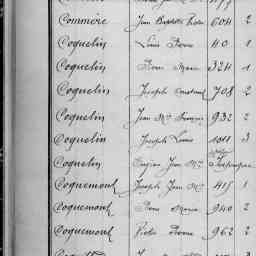 Commère Jean Baptiste 604 2
Coquelin Louis Pierre 40 1
Coquelin Pierre Marie 324 1
Coquelin Joseph Constant 708 2
Coquelin Jean Mie François 932 2
Coquelin Joseph Louis 1011 3
Coquelin Eugène Jean Mie
Coquemont Joseph Jean Mie 415 1
Coquemont Pierre Marie 940 2
Coquemont Pierre 962 2